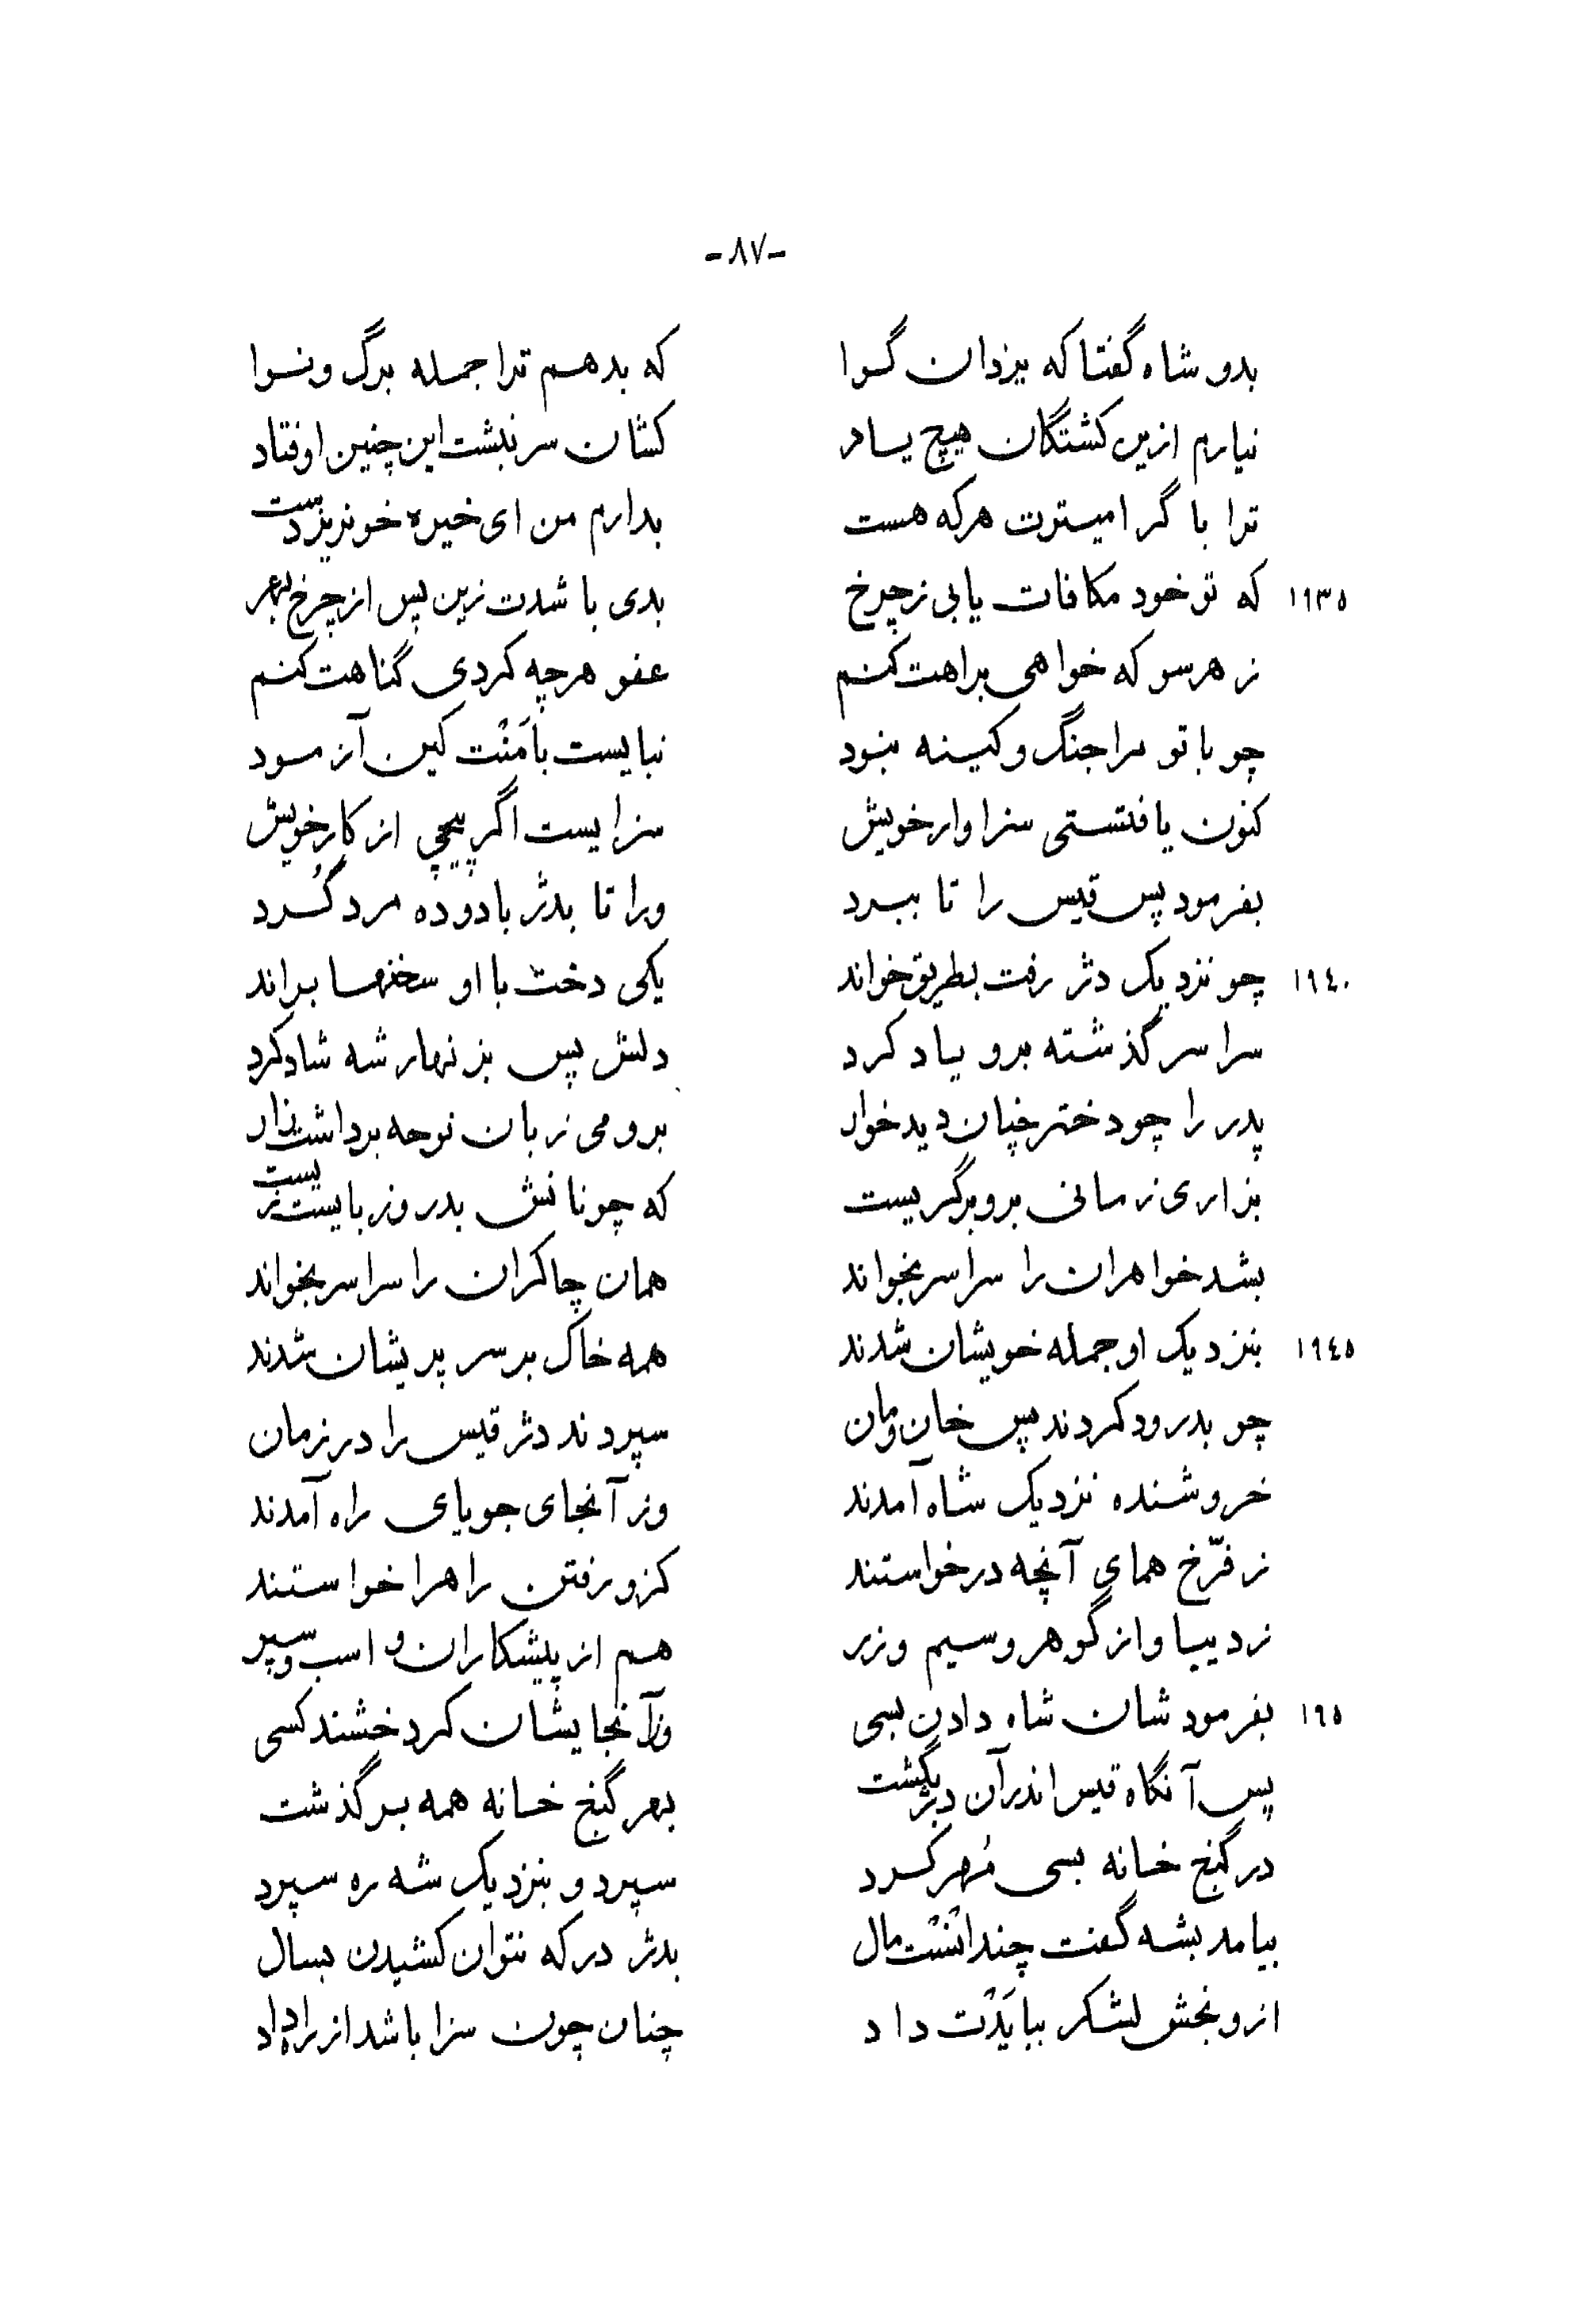 -۸۷-
بدو شاه گفتا که یزدان گوا که بدهم ترا جمله برگ و نوا
نیارم ازین کشتگان هیچ یاد کشان سر نبشت این چنین اوفتاد
ترا با گرامیترت هرکه هست بدارم من ای خیره خونریز دست
۱۹۳۵ که تو خود مکافات یابی ز چرخ بدی باشدت زین پس از چرخ بهر
ز هر سو که خواهی براهت کنم عفو هرچه کردی گناهت کنم
چو با تو مرا جنگ و کینه نبود نبایست بامَنْت کین آزمود
کنون یافتستی سزاوار خویش سزایست اگر پیچی از کار خویش
بفرمود پس قیس را تا ببرد ورا تا بدژ با دو ده مرد گُرد
۱۹٤۰ چو نزدیک دژ رفت بطریق خواند یکی دخت با او سخنها براند
سراسر گذشته برو یاد کرد دلش پس بزنهار شه شاد کرد
پدر را چو دختر چنان دید خوار برومی زبان نوحه برداشت زار
بزاری زمانی برو برگریست که چونانش بد روز بایست زیست
بشد خواهران را سراسر بخواند همان چاکران را سراسر بخواند
۱۹٤۵ بنزدیک او جمله خویشان شدند همه خاک بر سر پریشان شدند
چو بدرود کردند پس خان و مان سپردند دژ قیس را در زمان
خروشنده نزدیک شاه آمدند وز آنجای جویای راه آمدند
ز فرّخ همای آنچه درخواستند کزو رفتن راه را خواستند
ز دیبا و از گوهر و سیم و زر هم از پیشکاران و اسب و سپر
۱٦۵ بفرمودشان شاه دادن بسی وز آنجایشان کرد خشنند کسی
پس آنگاه قیس اندر آن دژ بگشت بهر گنج خانه همه برگذشت
در گنج خانه بسی مُهر کرد سپرد و بنزدیک شه ره سپرد
بیامد بشه گفت چندانْسْت مال بدژ در که نتوان کشیدن بسال
ازو بخش لشکر ببایَدْت داد چنان چون سزا باشد از راه داد